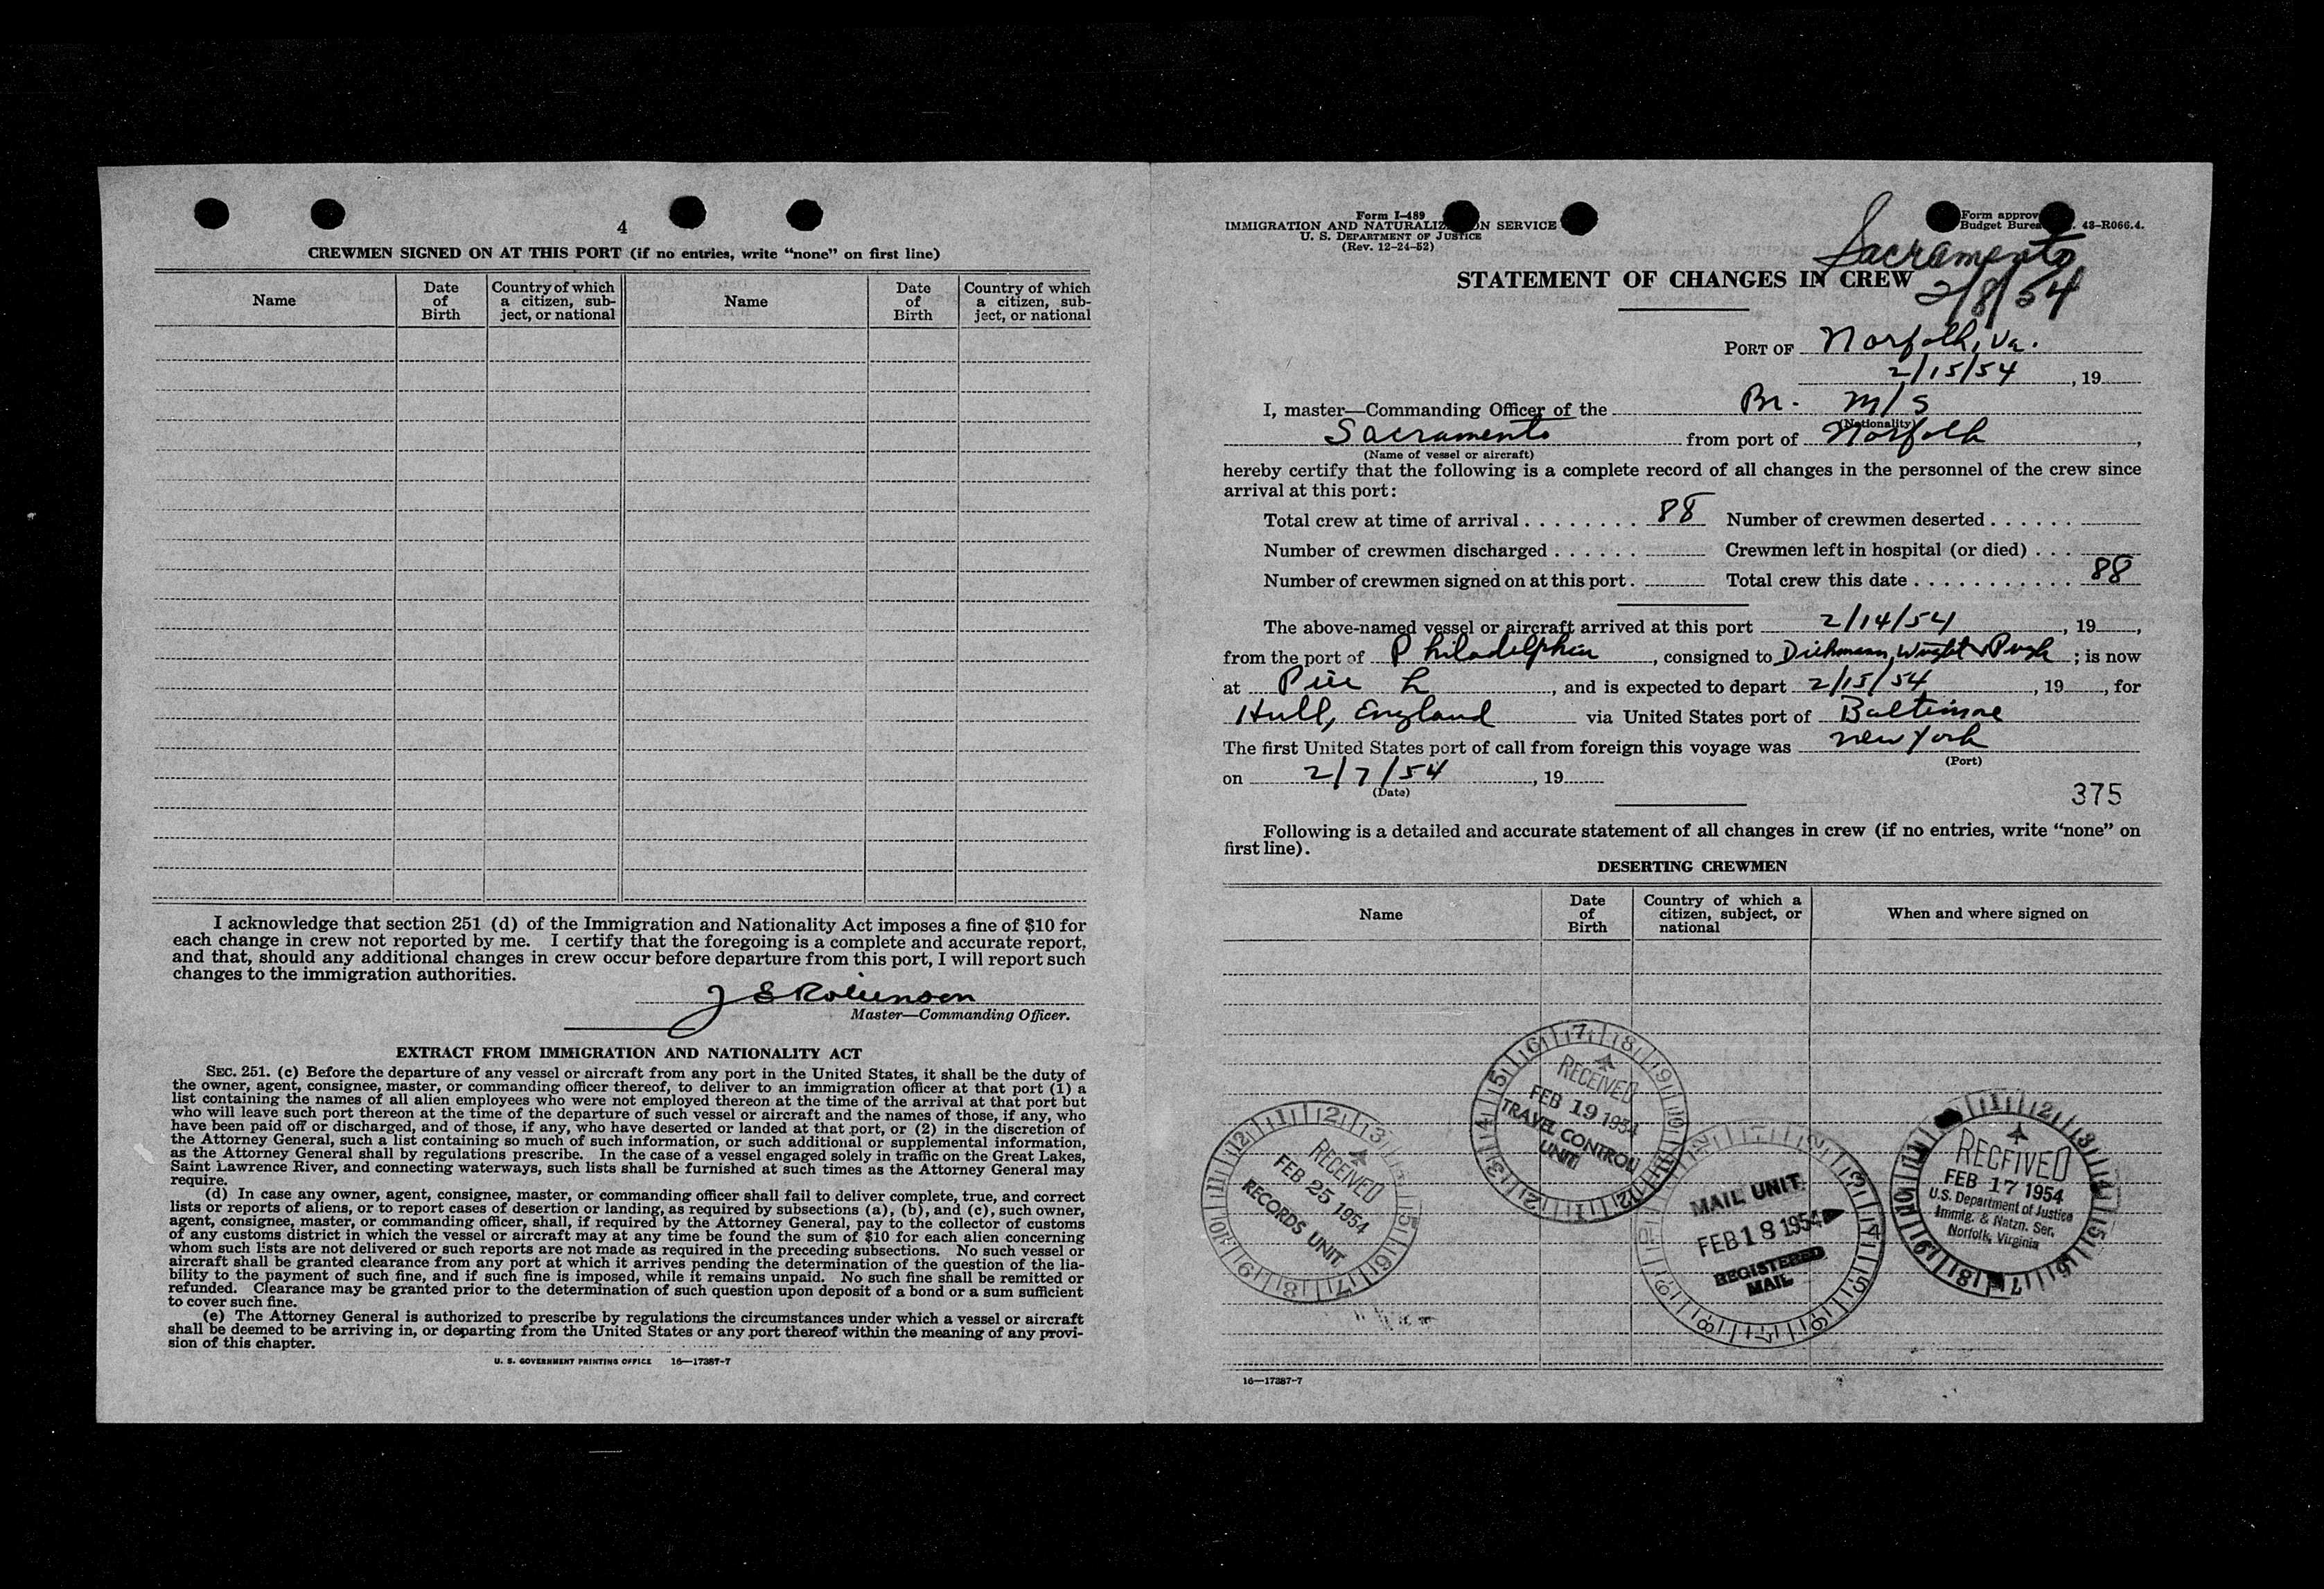 4
CREWMEN SIGNED ON AT THIS PORT (if no entries, write “none” on first line)
Name
Date of Birth
Country of which a citizen, sub-
ject, or national
Name
Date of Birth
Country of which a citizen, sub-
ject, or national
I acknowledge that section 251 (d) of the Immigration and Nationality Act imposes a fine of $10 for
each change in crew not reported by me. I certify that the foregoing is a complete and accurate report,
and that, should any additional changes in crew occur before departure from this port, I will report such
changes to the immigration authorities.
J E Robinson
Master—Commanding Officer.
EXTRACT FROM IMMIGRATION AND NATIONALITY ACT
SEC. 251. (c) Before the departure of any vessel or aircraft from any port in the United States, it shall be the duty of
the owner, agent, consignee, master, or commanding officer thereof, to deliver to an immigration officer at that port (1) a
list containing the names of all alien employees who were not employed thereon at the time of the arrival at that port but
who will leave such port thereon at the time of the departure of such vessel or aircraft and the names of those, if any, who
have been paid off or discharged, and of those, if any, who have deserted or landed at that port, or (2) in the discretion of
the Attorney General, such a list containing so much of such information, or such additional or supplemental information,
as the Attorney General shall by regulations prescribe. In the case of a vessel engaged solely in traffic on the Great Lakes,
Saint Lawrence River, and connecting waterways, such lists shall be furnished at such times as the Attorney General may
require.
(d) In case any owner, agent, consignee, master, or commanding officer shall fail to deliver complete, true, and correct
lists or reports of aliens, or to report cases of desertion or landing, as required by subsections (a), (b), and (c), such owner,
agent, consignee, master, or commanding officer, shall, if required by the Attorney General, pay to the collector of customs
of any customs district in which the vessel or aircraft may at any time be found the sum of $10 for each alien concerning
whom such lists are not delivered or such reports are not made as required in the preceding subsections. No such vessel or
aircraft shall be granted clearance from any port at which it arrives pending the determination of the question of the lia-
bility to the payment of such fine, and if such fine is imposed, while it remains unpaid. No such fine shall be remitted or
refunded. Clearance may be granted prior to the determination of such question upon deposit of a bond or a sum sufficient
to cover such fine.
(e) The Attorney General is authorized to prescribe by regulations the circumstances under which a vessel or aircraft
shall be deemed to be arriving in, or departing from the United States or any port thereof within the meaning of any provi-
sion of this chapter.
U. S. GOVERNMENT PRINTING OFFICE 16—17387-7
Form I-489
IMMIGRATION AND NATURALIZ ON SERVICE
U. S. DEPARTMENT OF JUSTICE
(Rev. 12-24-52)
Form approv
Budget Burea . 43-R066.4.
Sacramento
2/8/54
STATEMENT OF CHANGES IN CREW
PORT OF Norfolk, Va.
2/15/54, 19
I, master—Commanding Officer of the Br. M/S
(Nationality)
Sacramento from port of Norfolk,
(Name of vessel or aircraft)
hereby certify that the following is a complete record of all changes in the personnel of the crew since
arrival at this port:
Total crew at time of arrival . . . . . . . . 88 Number of crewmen deserted . . . . . .
Number of crewmen discharged . . . . . . Crewmen left in hospital (or died) . . .
Number of crewmen signed on at this port. Total crew this date . . . . . . . . . . . 88
The above-named vessel or aircraft arrived at this port 2/14/54, 19,
from the port of Philadelphia, consigned to Dichmann, Wright & Pugh; is now
at Pier L, and is expected to depart 2/15/54, 19, for
Hull, England via United States port of Baltimore
The first United States port of call from foreign this voyage was New York
(Port)
on 2/7/54, 19
(Date)
375
Following is a detailed and accurate statement of all changes in crew (if no entries, write “none” on
first line).
DESERTING CREWMEN
Name
Date of Birth
Country of which a citizen, subject, or national
When and where signed on
RECEIVED
FEB 19 1954
TRAVEL CONTROL
UNIT
RECEIVED
FEB 25 1954
RECORDS UNIT
MAIL UNIT
FEB 18 1954
REGISTERED
MAIL
RECEIVED
FEB 17 1954
U.S. Department of Justice
Immig. & Natzn. Ser.
Norfolk, Virginia
16—17387-7